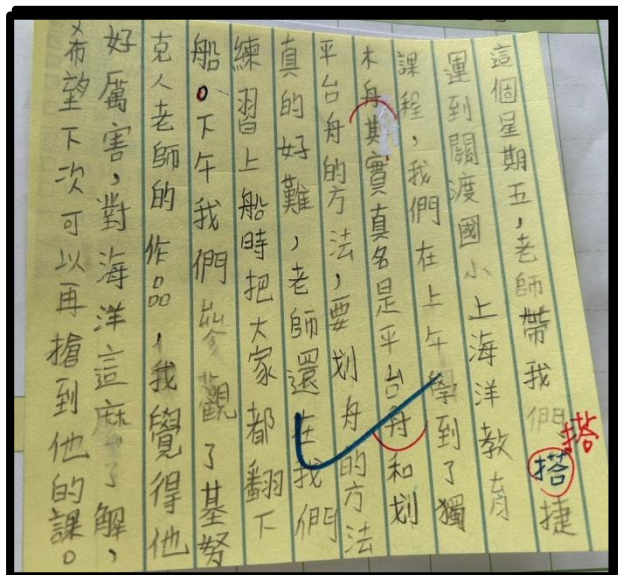 這個星期五,老師帶我們搭捷
搭
運到關渡國小上海洋教育
課程,我們在上午學到了獨
木舟其實真名是平台舟和划
平台舟的方法,要划舟的方法
真的好難,老師還在我們
練習上船時把大家都翻下
船。下午我們參觀了基努
克人老師的作品,我覺得他
好厲害,對海洋這麼了解,
希望下次可以再搶到他的課。